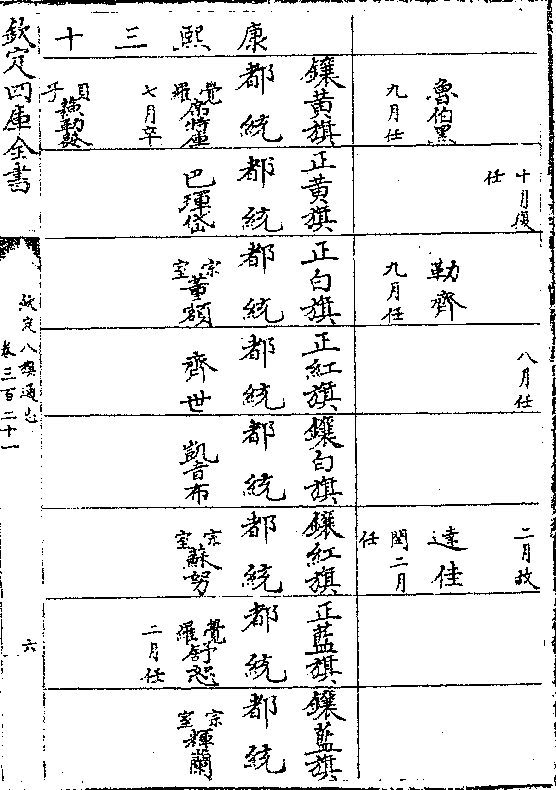 康熙三十
魯伯黑
九月任
鑲黃旗
都統
覺羅席特庫
七月卒
貝子
十月復
任
正黃旗
都統
巴琿岱
勒齊
九月任
正白旗
都統
宗室董額
八月任
正紅旗
都統
齊世
鑲白旗
都統
凱音布
二月故
達佳
閏二月
任
鑲紅旗
都統
宗室蘇努
正藍旗
都統
覺羅舒恕
二月任
鑲藍旗
都統
宗室輝蘭
欽定四庫全書
欽定八旗通志
卷三百二十一
六